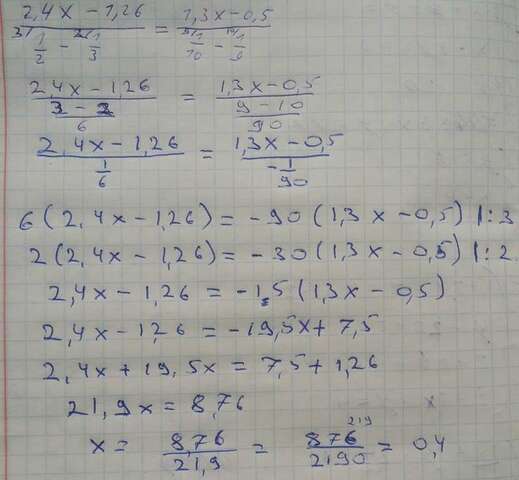 (2,4x - 1,26) / (³⁾1/2 - ²⁾1/3) = (1,3x - 0,5) / (⁹⁾1/10 - ¹⁰⁾1/9)
(2,4x - 1,26) / ((3 - 2)/6) = (1,3x - 0,5) / ((9 - 10)/90)
(2,4x - 1,26) / (1/6) = (1,3x - 0,5) / (-1/90)
6(2,4x - 1,26) = -90(1,3x - 0,5) |:3
2(2,4x - 1,26) = -30(1,3x - 0,5) |:2
2,4x - 1,26 = -15(1,3x - 0,5)
2,4x - 1,26 = -19,5x + 7,5
2,4x + 19,5x = 7,5 + 1,26
21,9x = 8,76
x = 8,76/21,9 = 876/2190 = 0,4